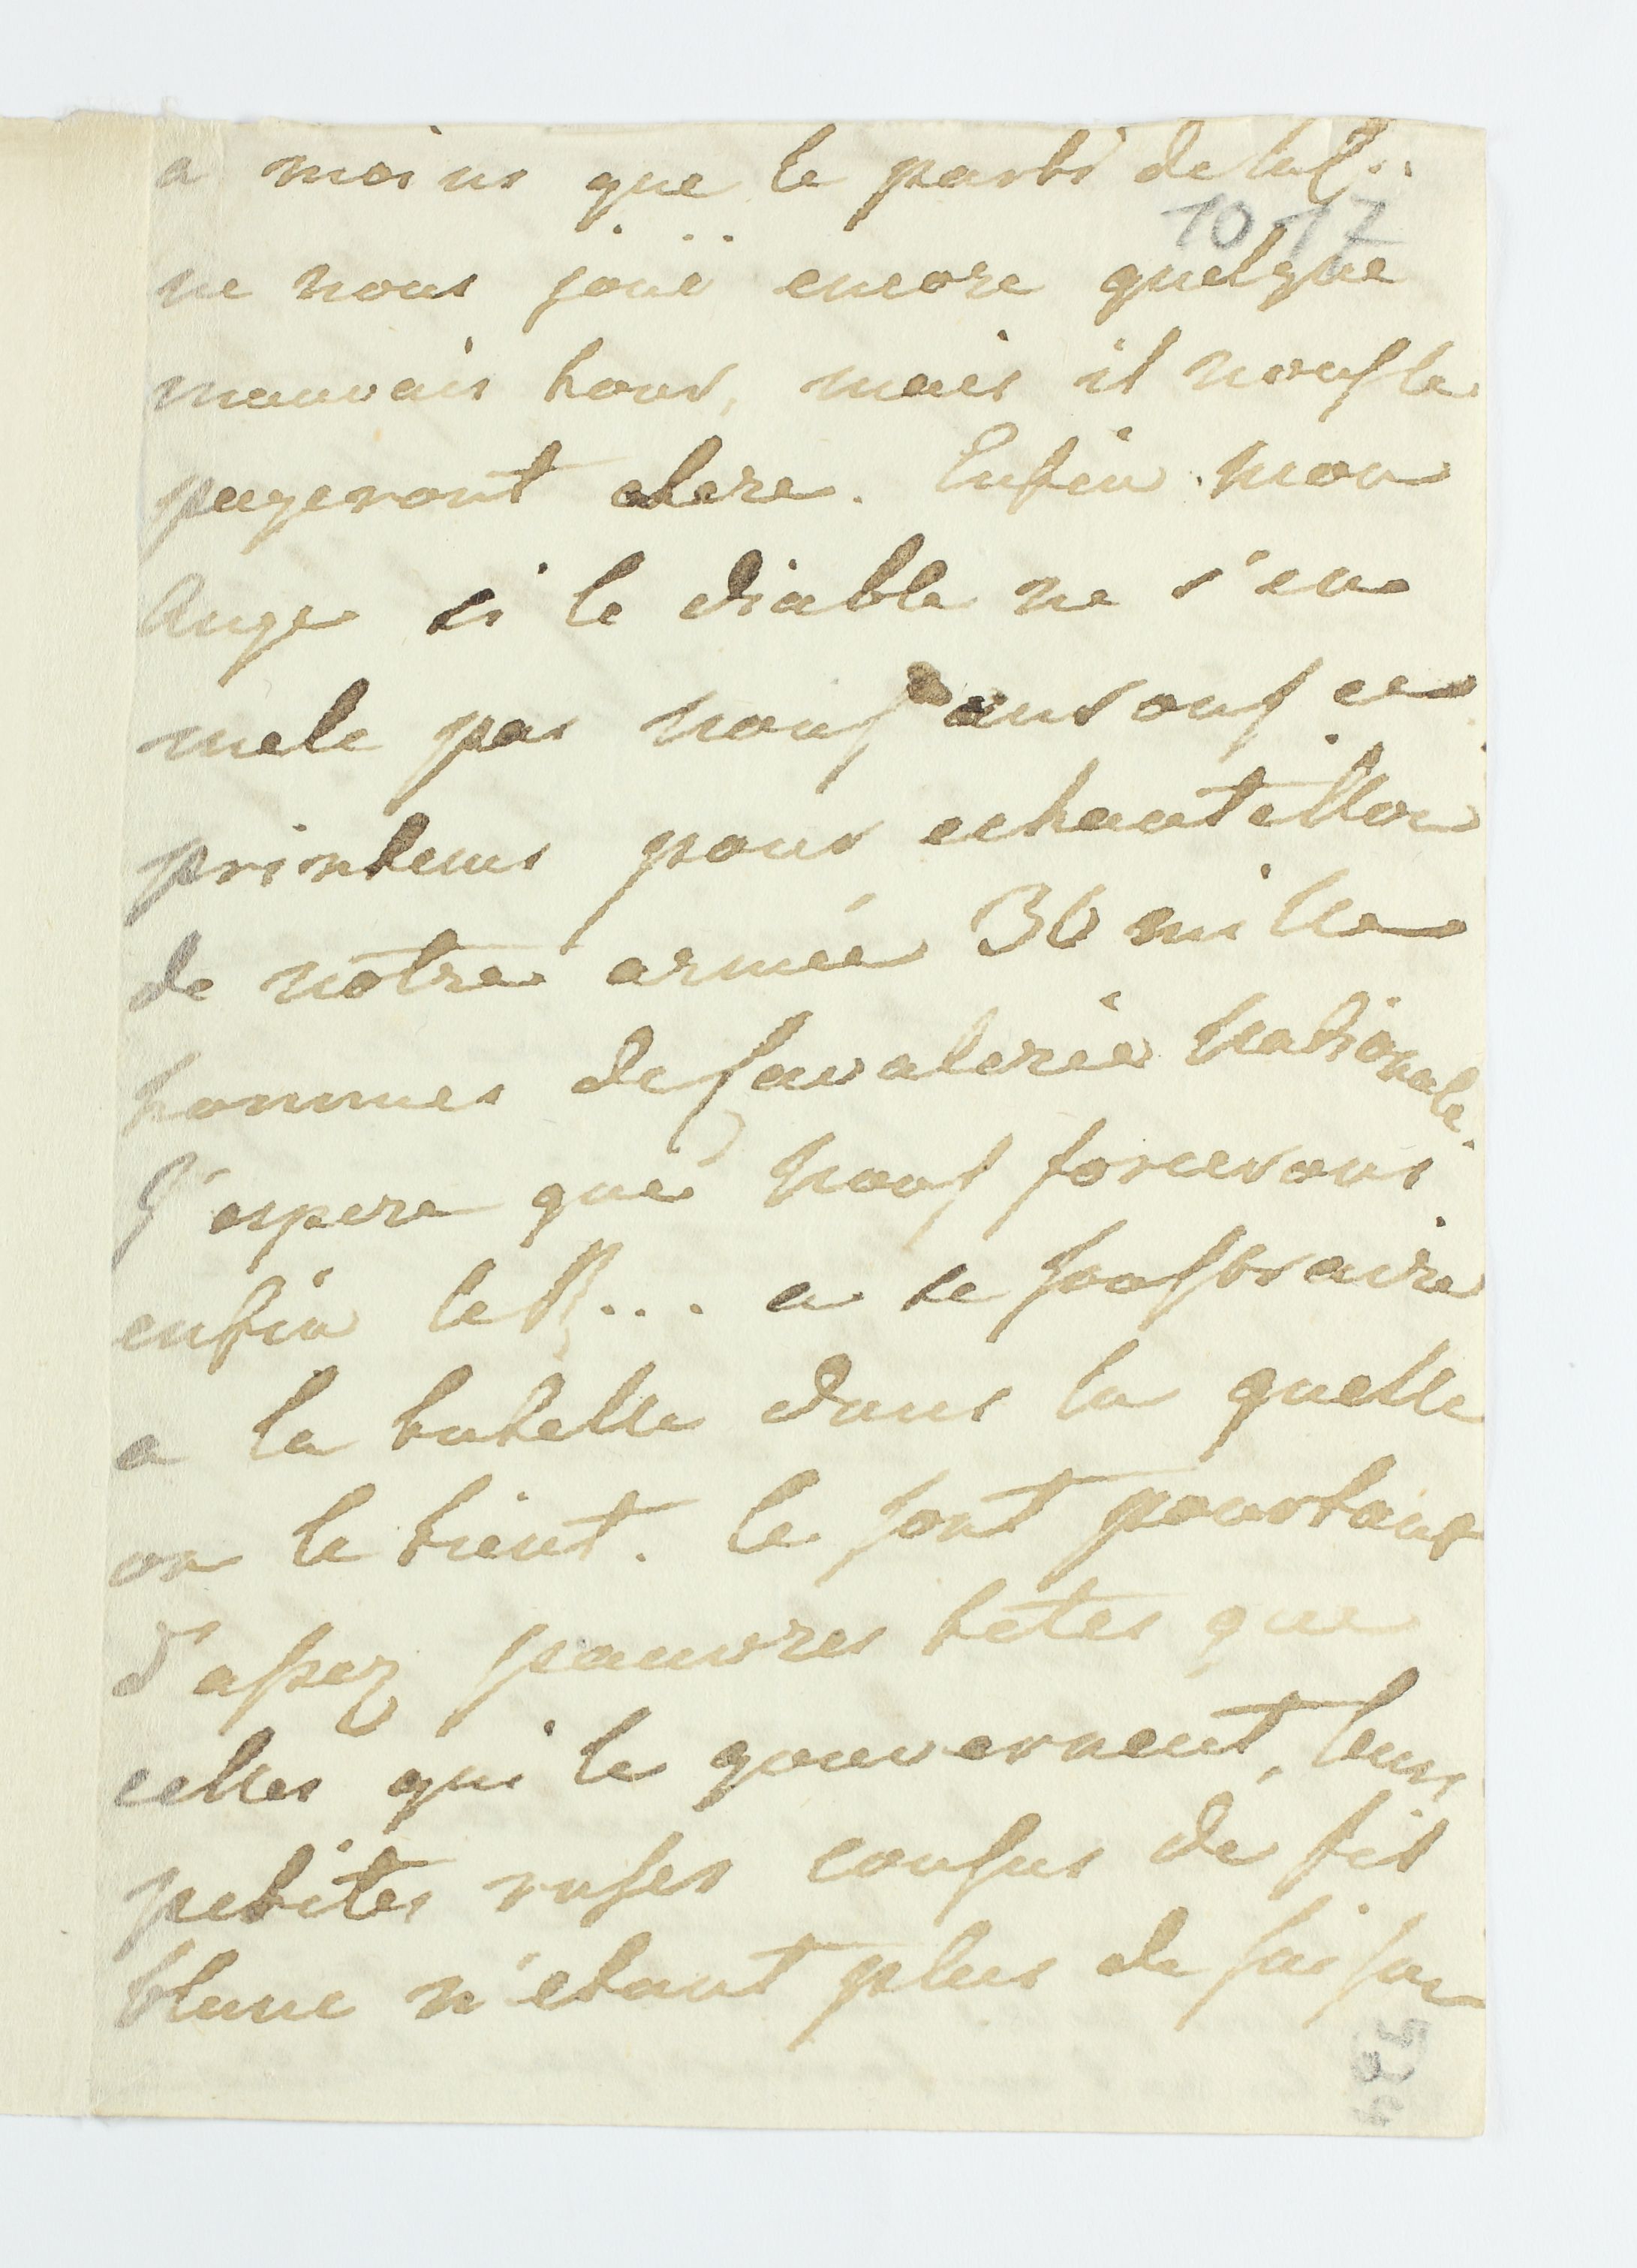 a moins que le parti de la C..
10 17
ne nous joue encore quelque
mauvais tour, mais il nous le
payeront chere. Enfin mon
Ange si le diable ne s'en
mele pas nous aurons ce
printems pour echantillon
de notre armée 30 mille
hommes de Cavalerie Nationale.
J'espere que nous forcerons
enfin le R... a se soustraire
a la tutelle dans la quelle
on le tient. Ce sont pourtant
d'assez pauvres tetes que
celles qui le gouvernent, leurs
petites ruses cousus de fil
blanc n'etant plus de saison